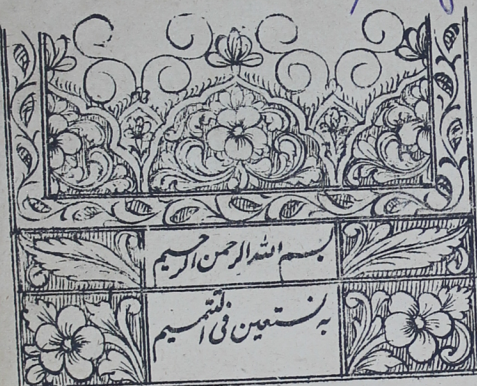 بسم الله الرحمن الرحيم
به نستعین فی التتمیم